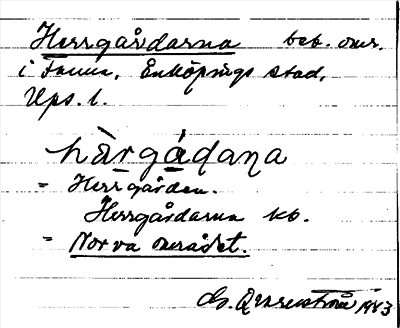 Herrgårdarna beb. omr.
i Fanna, Enköpings stad,
Ups. l.
hàrgádaṇa
= Herrgården.
Herrgårdarna kb.
= Norra området.
1943